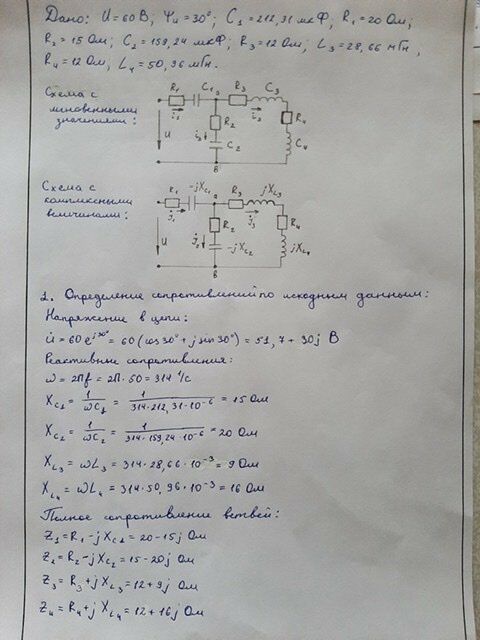 Дано: U=60 В, Ψu=30°, C₁=212,31 мкФ, R₁=20 Ом;
R₂=15 Ом; C₂=159,24 мкФ; R₃=12 Ом; L₃=28,66 мГн,
R₄=12 Ом; L₄=50,96 мГн.
Схема с
мгновенными
значениями:
R₁ C₁ a R₃ C₃
i₁ i₂ i₃ R₂ R₄
U C₂ C₄
в
Схема с
комплексными
величинами:
R₁ -jXc₁ a R₃ jXL₃
İ₁ İ₃ R₂ R₄
U İ₂ -jXc₂ jXL₄
в
1. Определение сопротивлений по исходным данным:
Напряжение в цепи:
u̇=60e^j30° = 60(cos30°+jsin30°) = 51,7+30j В
Реактивные сопротивления:
ω=2πf=2π·50=314 1/с
Xc₁ = 1/ωC₁ = 1/314·212,31·10⁻⁶ = 15 Ом
Xc₂ = 1/ωC₂ = 1/314·159,24·10⁻⁶ = 20 Ом
XL₃ = ωL₃ = 314·28,66·10⁻³ = 9 Ом
XL₄ = ωL₄ = 314·50,96·10⁻³ = 16 Ом
Полное сопротивление ветвей:
Z₁=R₁-jXc₁=20-15j Ом
Z₂=R₂-jXc₂=15-20j Ом
Z₃=R₃+jXL₃=12+9j Ом
Z₄=R₄+jXL₄=12+16j Ом